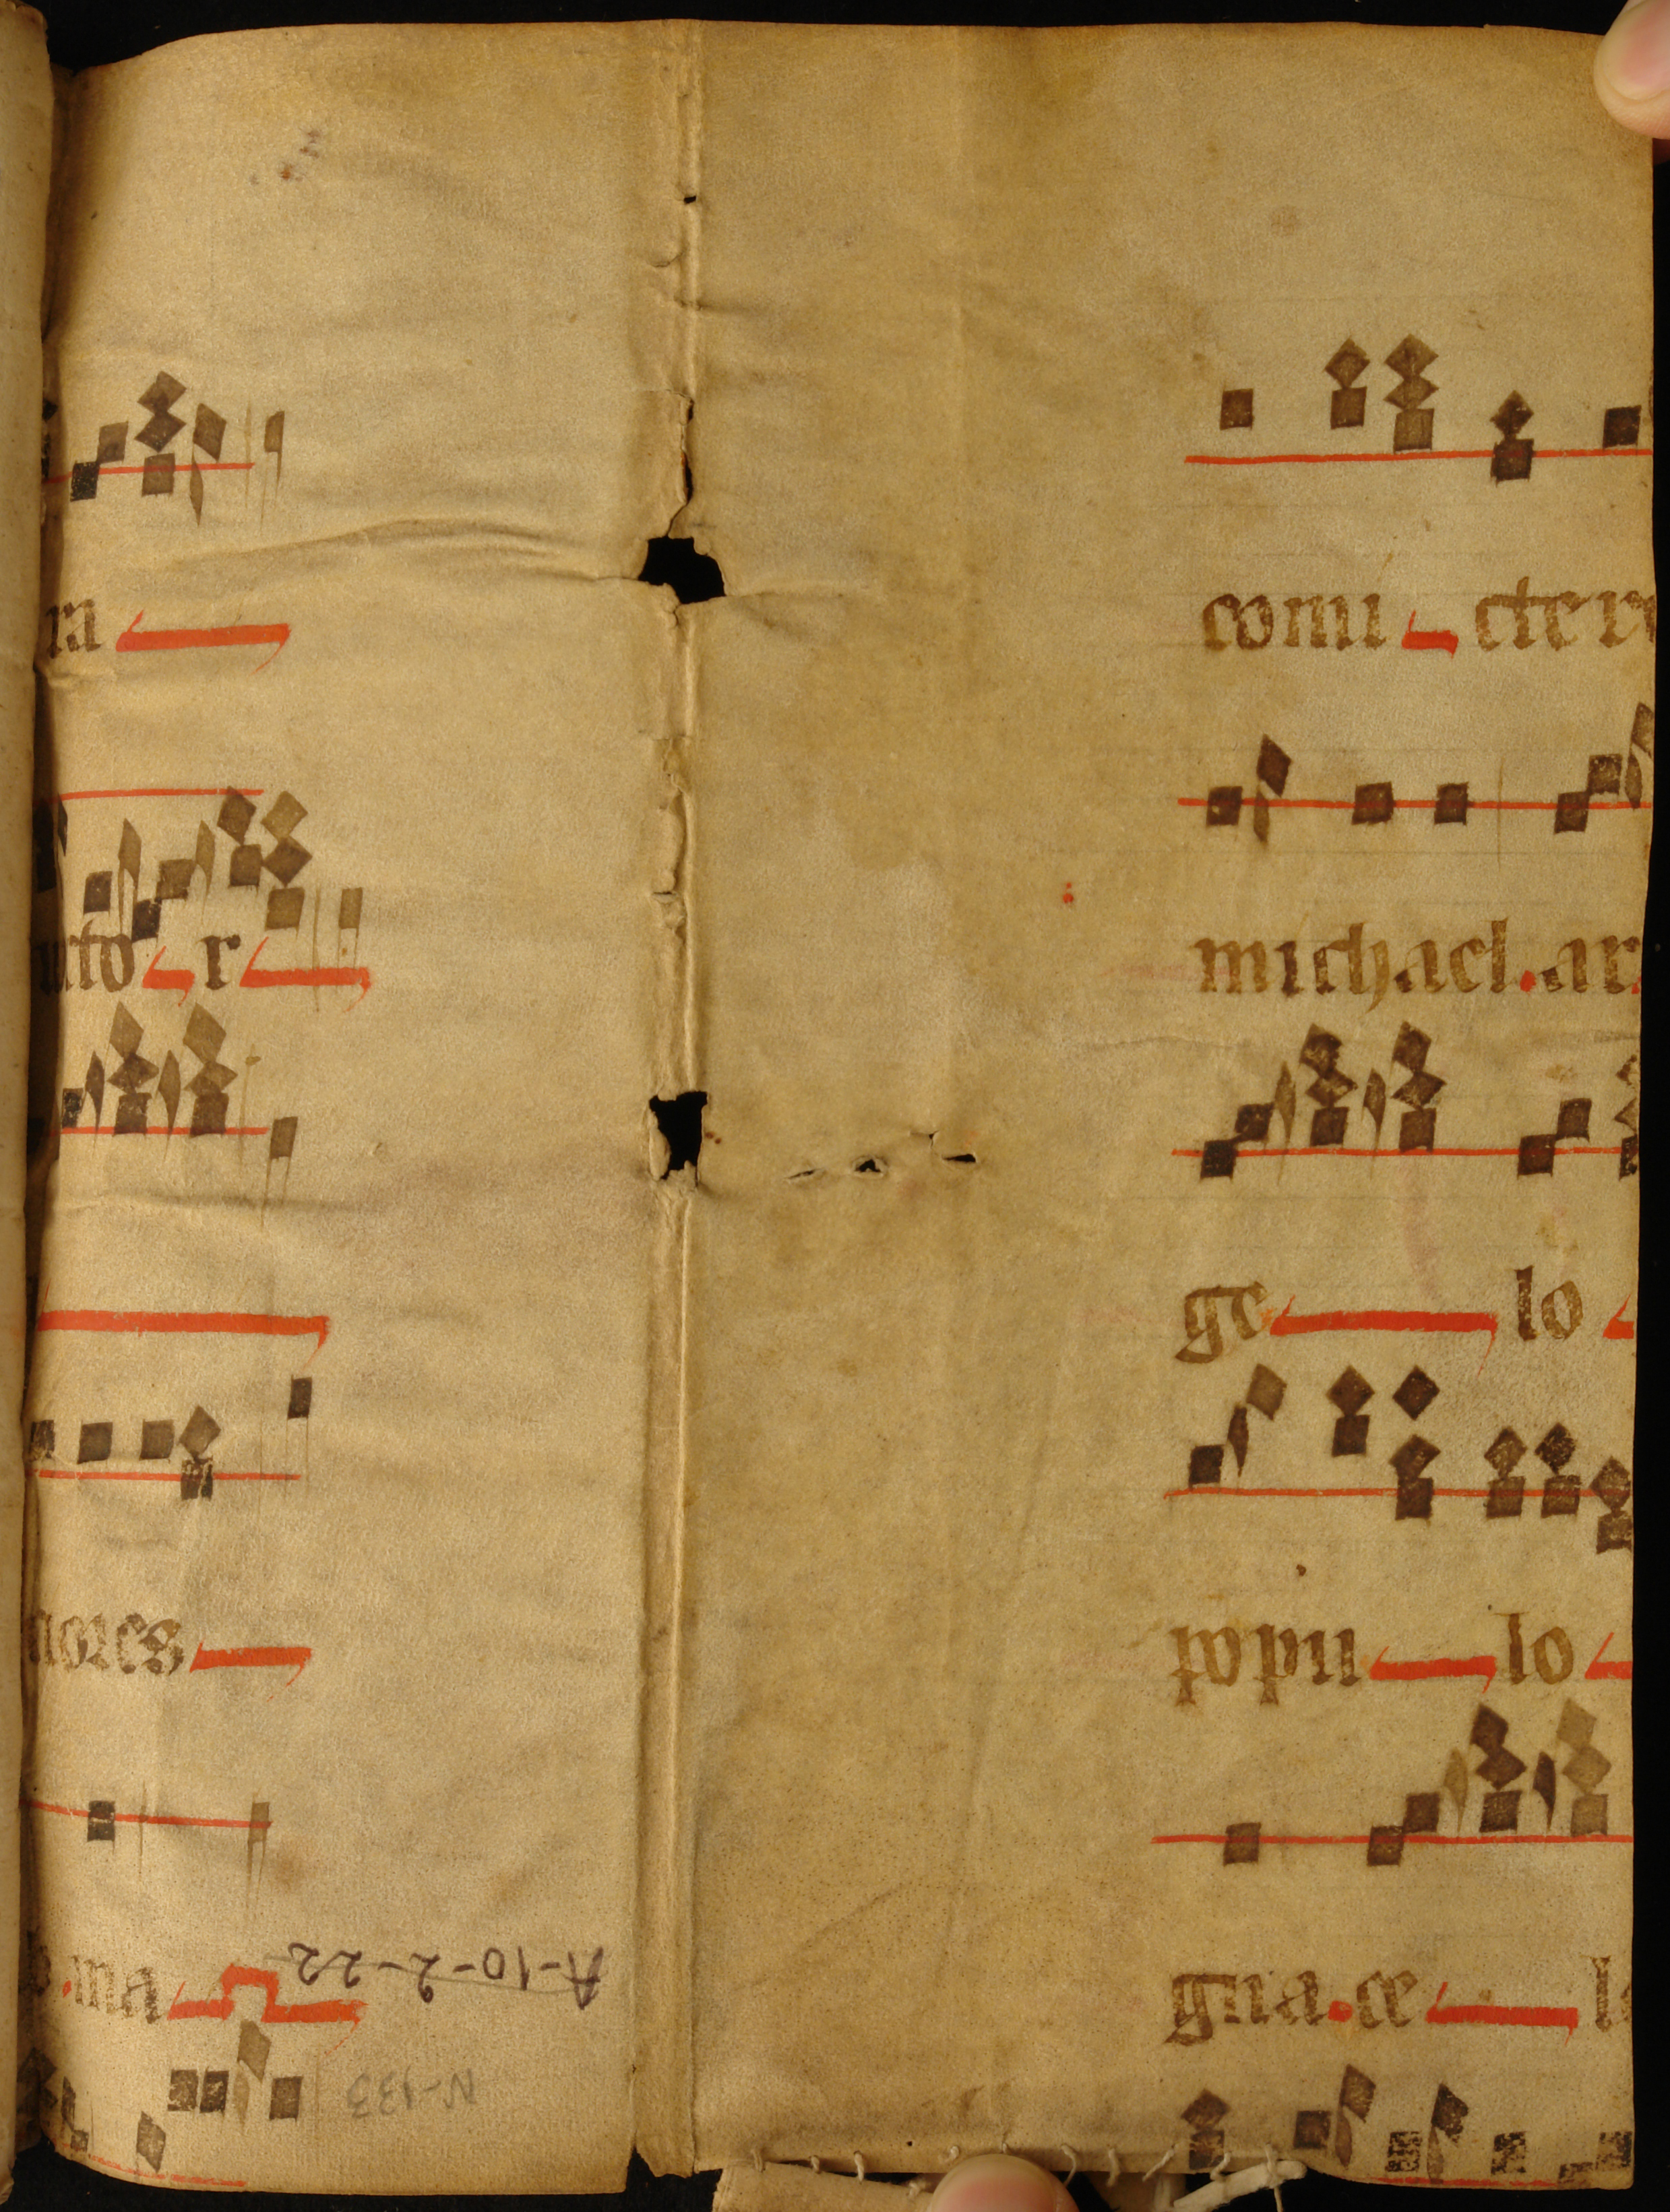 ra
cto r
nores
ma
A-10-2-22
N-133
comi ctere
michael. ar
ge lo
popu lo
gna. ce l